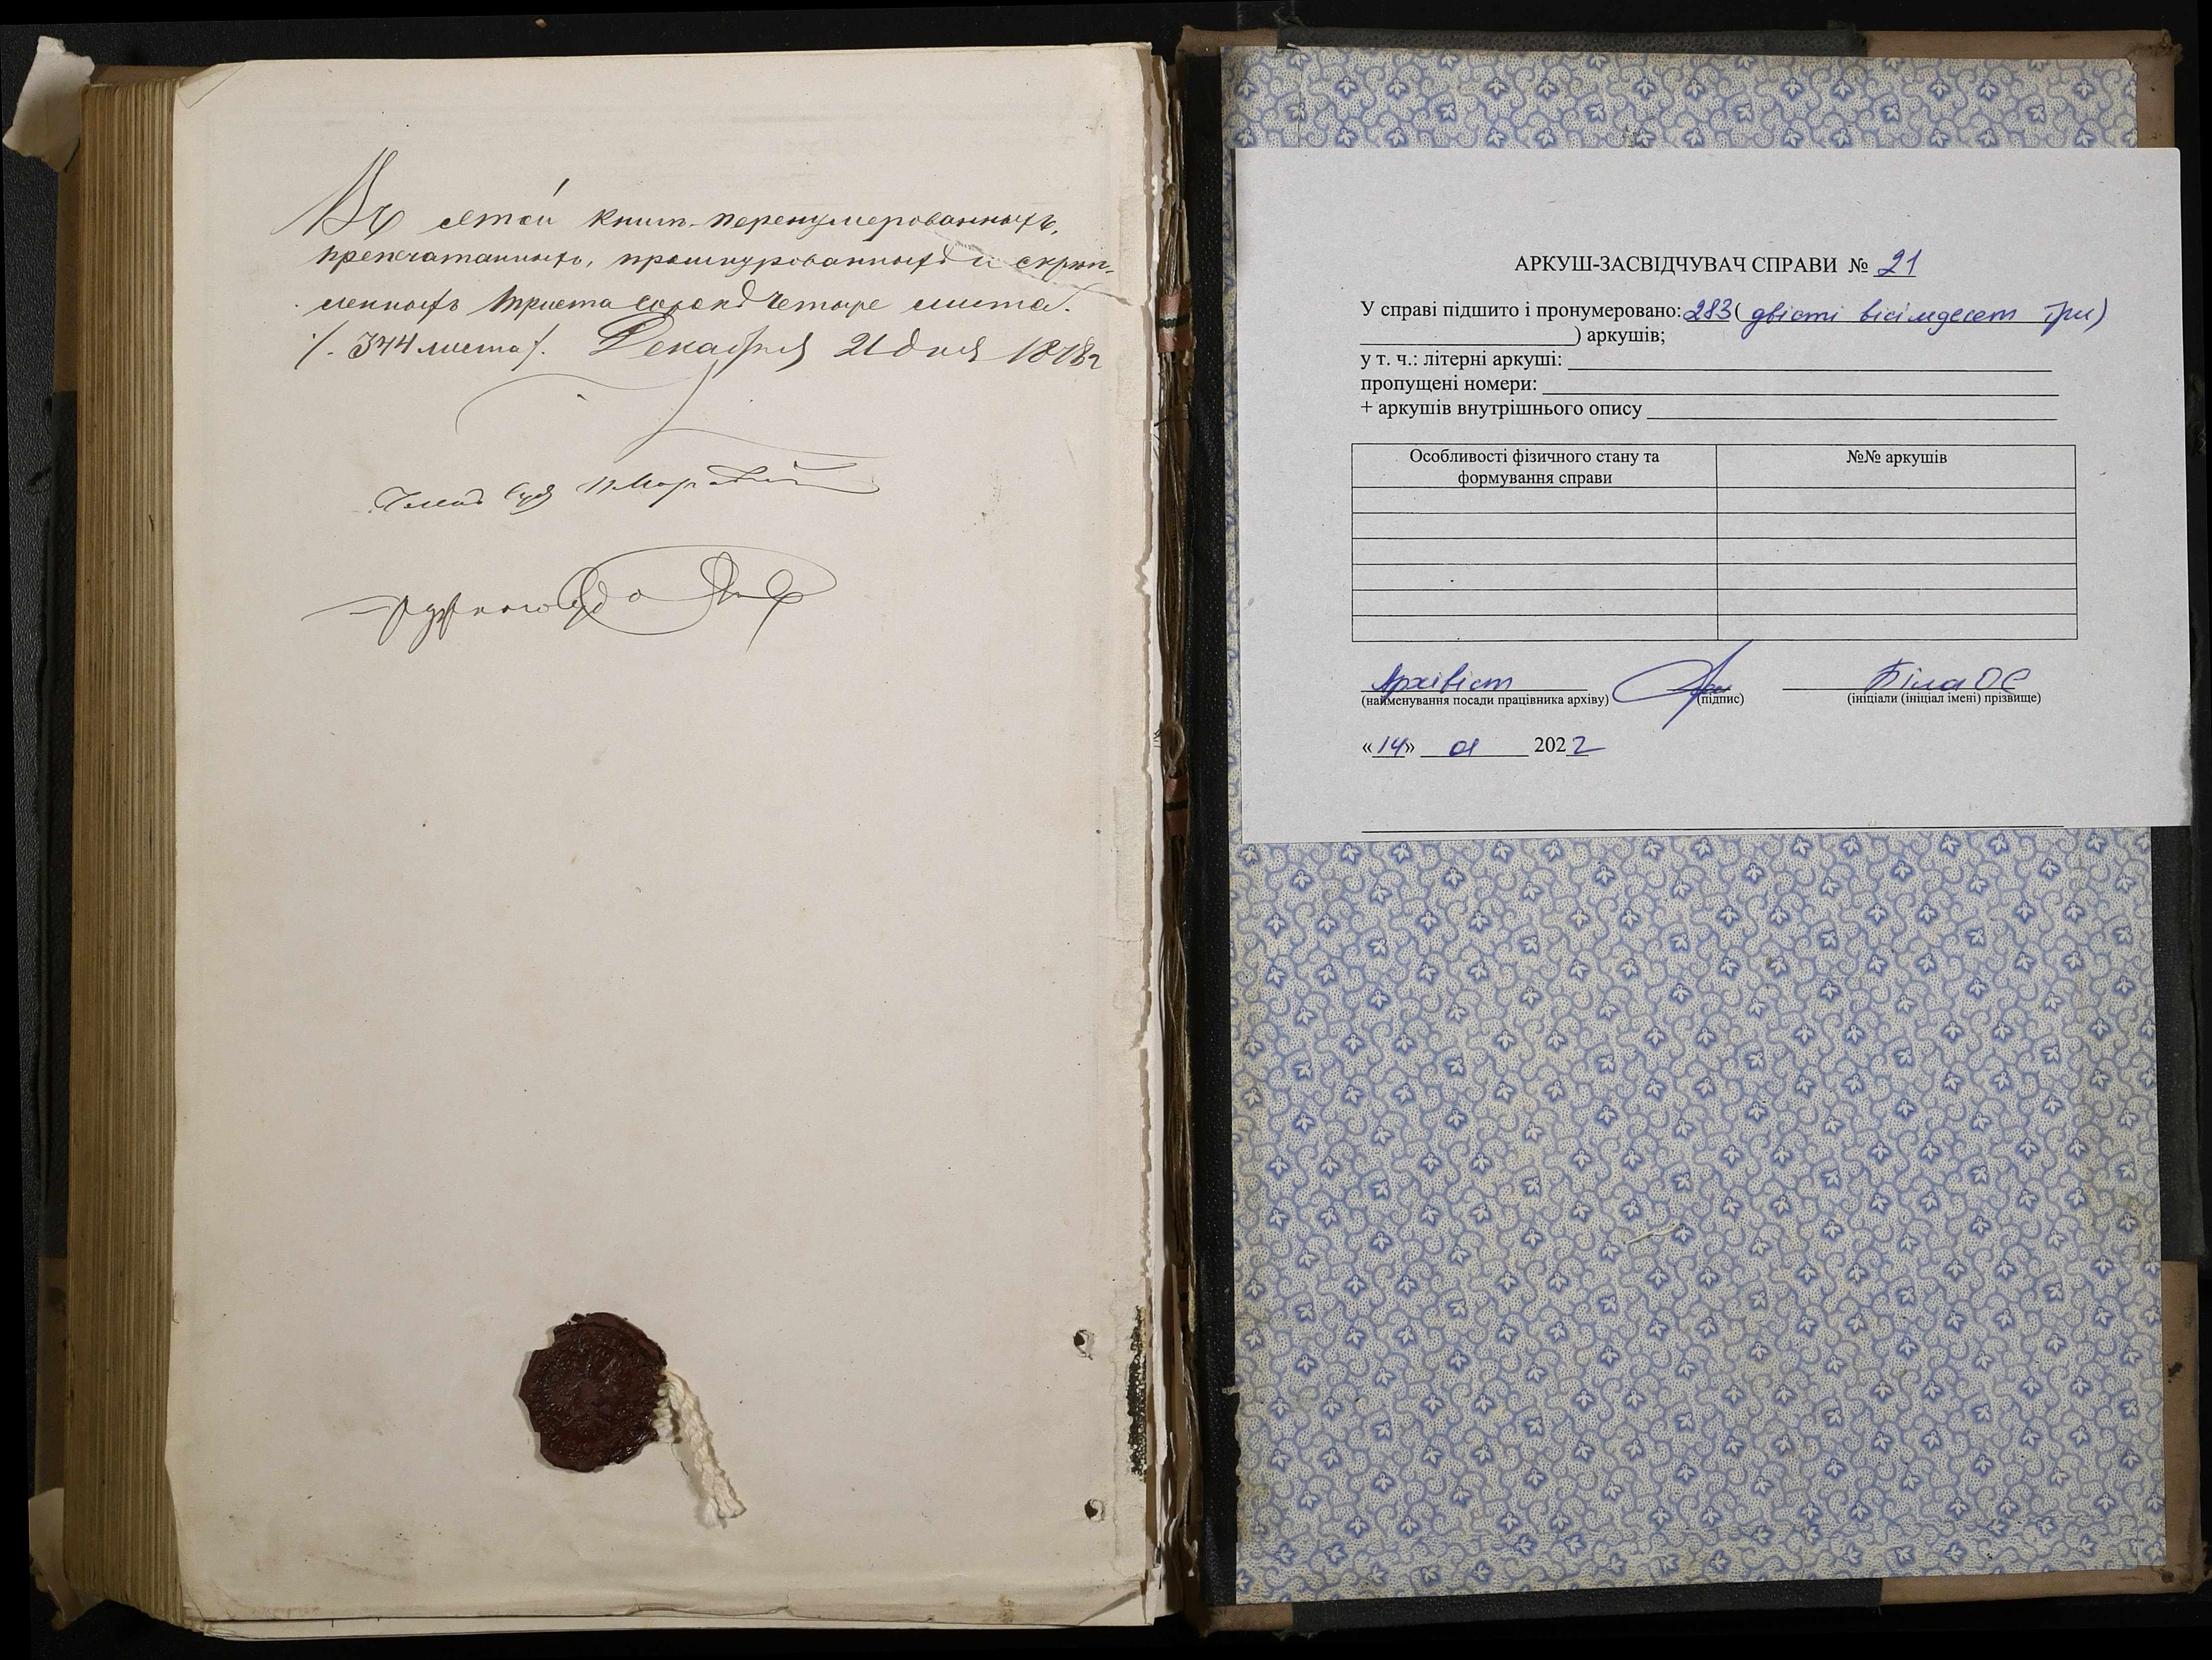 Въ этой книгѣ перенумерованныхъ,
препечатанныхъ, прошнурованныхъ и скрѣп-
ленныхъ триста сорокъ четыре листа.
/. 344 листа /. Декабря 21 дня 1878 г
Членъ Суда
АРКУШ-ЗАСВІДЧУВАЧ СПРАВИ № 21
У справі підшито і пронумеровано: 283 ( двісті вісімдесят три)
) аркушів;
у т. ч.: літерні аркуші:
пропущені номери:
+ аркушів внутрішнього опису
Особливості фізичного стану та формування справи
№№ аркушів
Архівіст Біла ОЄ
(найменування посади працівника архіву) (підпис) (ініціали (ініціал імені) прізвище)
«14» 01 2022